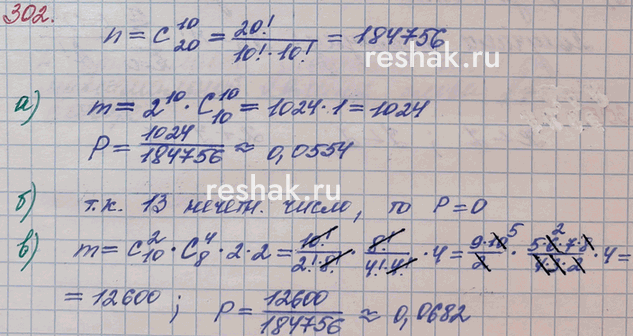 302.
n = C_20^10 = 20!/(10!·10!) = 184756
reshak.ru
а) m = 2^10 · C_10^10 = 1024·1 = 1024
P = 1024/184756 ≈ 0,0554
reshak.ru
б) т.к. 13 нечетн. число, то P=0
в) m = C_10^2 · C_8^4 · 2·2 = 10!/(2!·8!) · 8!/(4!·4!) · 4 = 9·10/2 5 · 5·6·7·8/(4·3·2) 2 · 4 =
= 12600 ; P = 12600/184756 ≈ 0,0682
reshak.ru